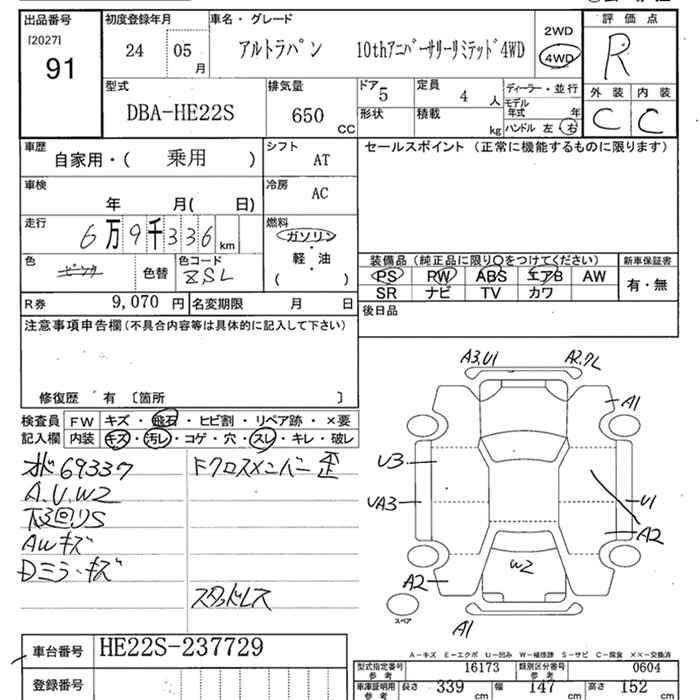 出品番号 初度登録年月 車名・グレード 評価点
[2027] 24 05 月 アルトラパン 10thアニバーサリーリミテッド4WD 2WD
91 4WD R
型式 排気量 ドア 定員 ディーラー・並行 外装 内装
DBA-HE22S 650 CC 5 4 人 モデル年式 年 C C
形状 積載 kg ハンドル 左・右
車歴 シフト セールスポイント (正常に機能するものに限ります)
自家用・( 乗用 ) AT
車検 冷房
年 月( 日) AC
走行 燃料
6万9千336km ガソリン
・
軽・油
・
( )
色 色替 色コード 装備品(純正品に限り○をつけてください) 新車保証書
ピンク ZSL PS PW ABS エアB AW 有・無
SR ナビ TV カワ
R券 9,070 円 名変期限 月 日 後日品
注意事項申告欄(不具合内容等は具体的に記入して下さい)
修復歴 有 〔箇所 〕
検査員 FW キズ・飛石・ヒビ割・リペア跡・×要
記入欄 内装 キズ・汚レ・コゲ・穴・スレ・キレ・破レ
69337 Fクロスメンバー歪
A.U.W2
下廻りS
AWキズ
Dミラーキズ
スタッドレス
A3,U1 A2,クレ
A1
U3
UA3 U1
A2
A2 W2
スペア
A1
車台番号 HE22S-237729
登録番号
A-キズ E-エクボ U-凹み W-補修跡 S-サビ C-腐食 ××-交換済
型式指定番号 参考 16173 類別区分番号 参考 0604
車庫証明用 参考 長さ 339 cm 幅 147 cm 高さ 152 cm